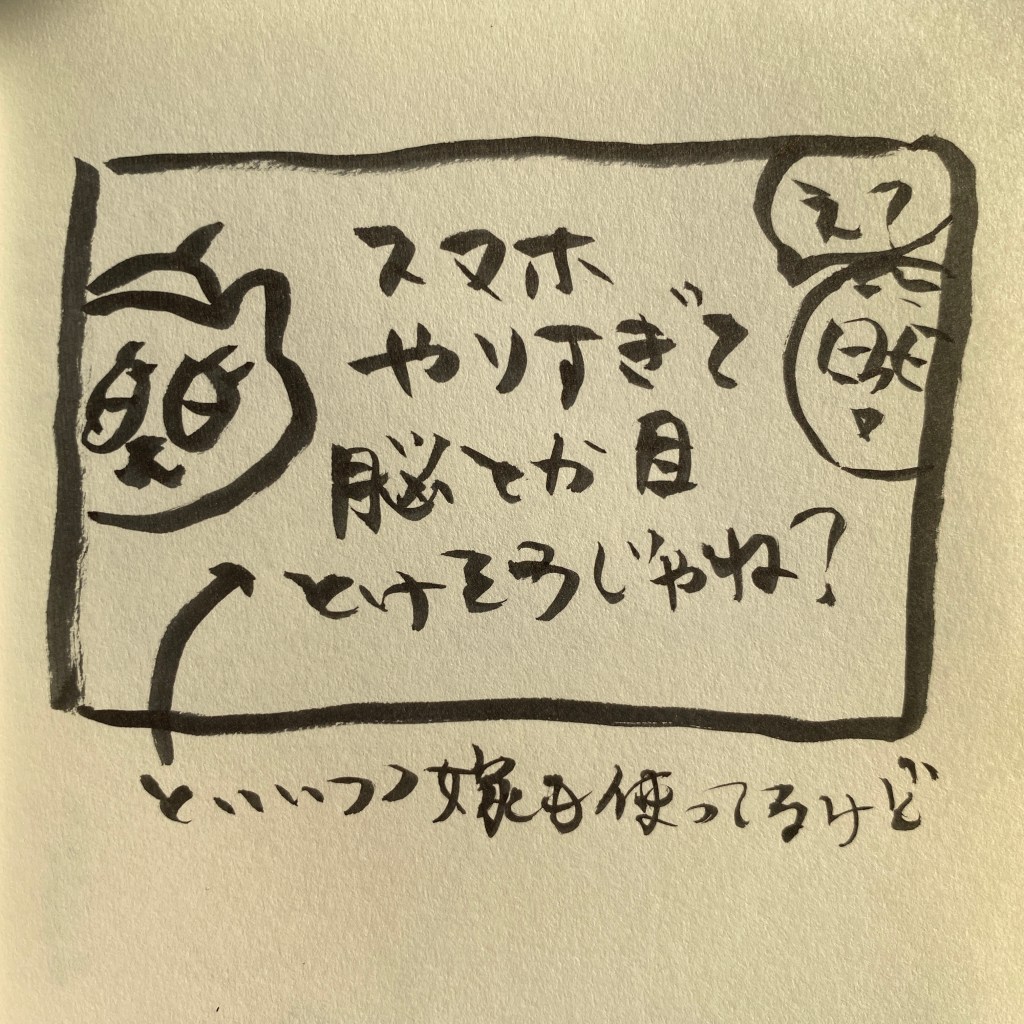 スマホ
やりすぎて
脳とか目
とけそうじゃね?
えっ
といいつつ嫁も使ってるけど